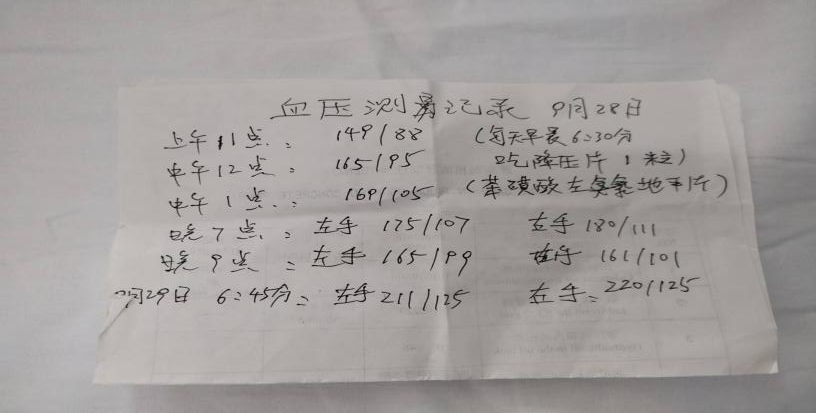 血压测量记录 9月28日
上午11点: 149/88 (每天早晨6:30分
中午12点: 165/95 吃降压片1粒)
中午1点: 169/105 (苯磺酸左氨氯地平片)
晚7点: 左手 175/107 左手 180/111
晚9点: 左手 165/99 右手 161/101
月29日 6:45分: 左手 211/125 左手: 220/125